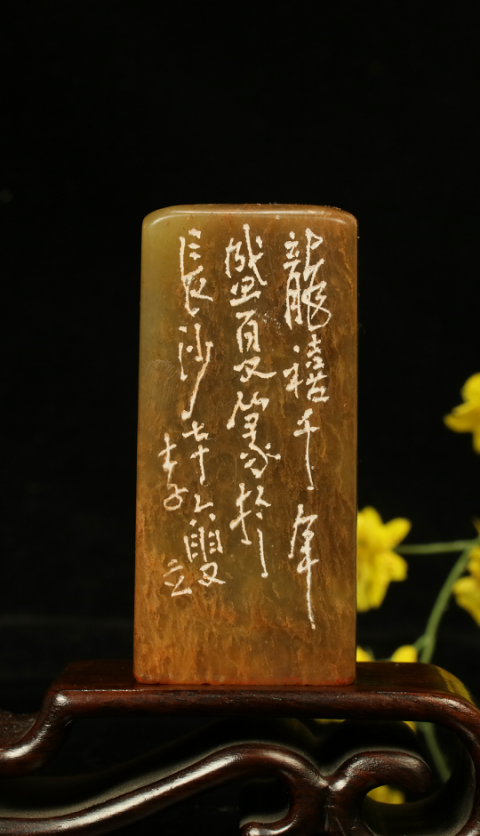 龍禧千年
盛夏篆於
長沙七十六叟
李立